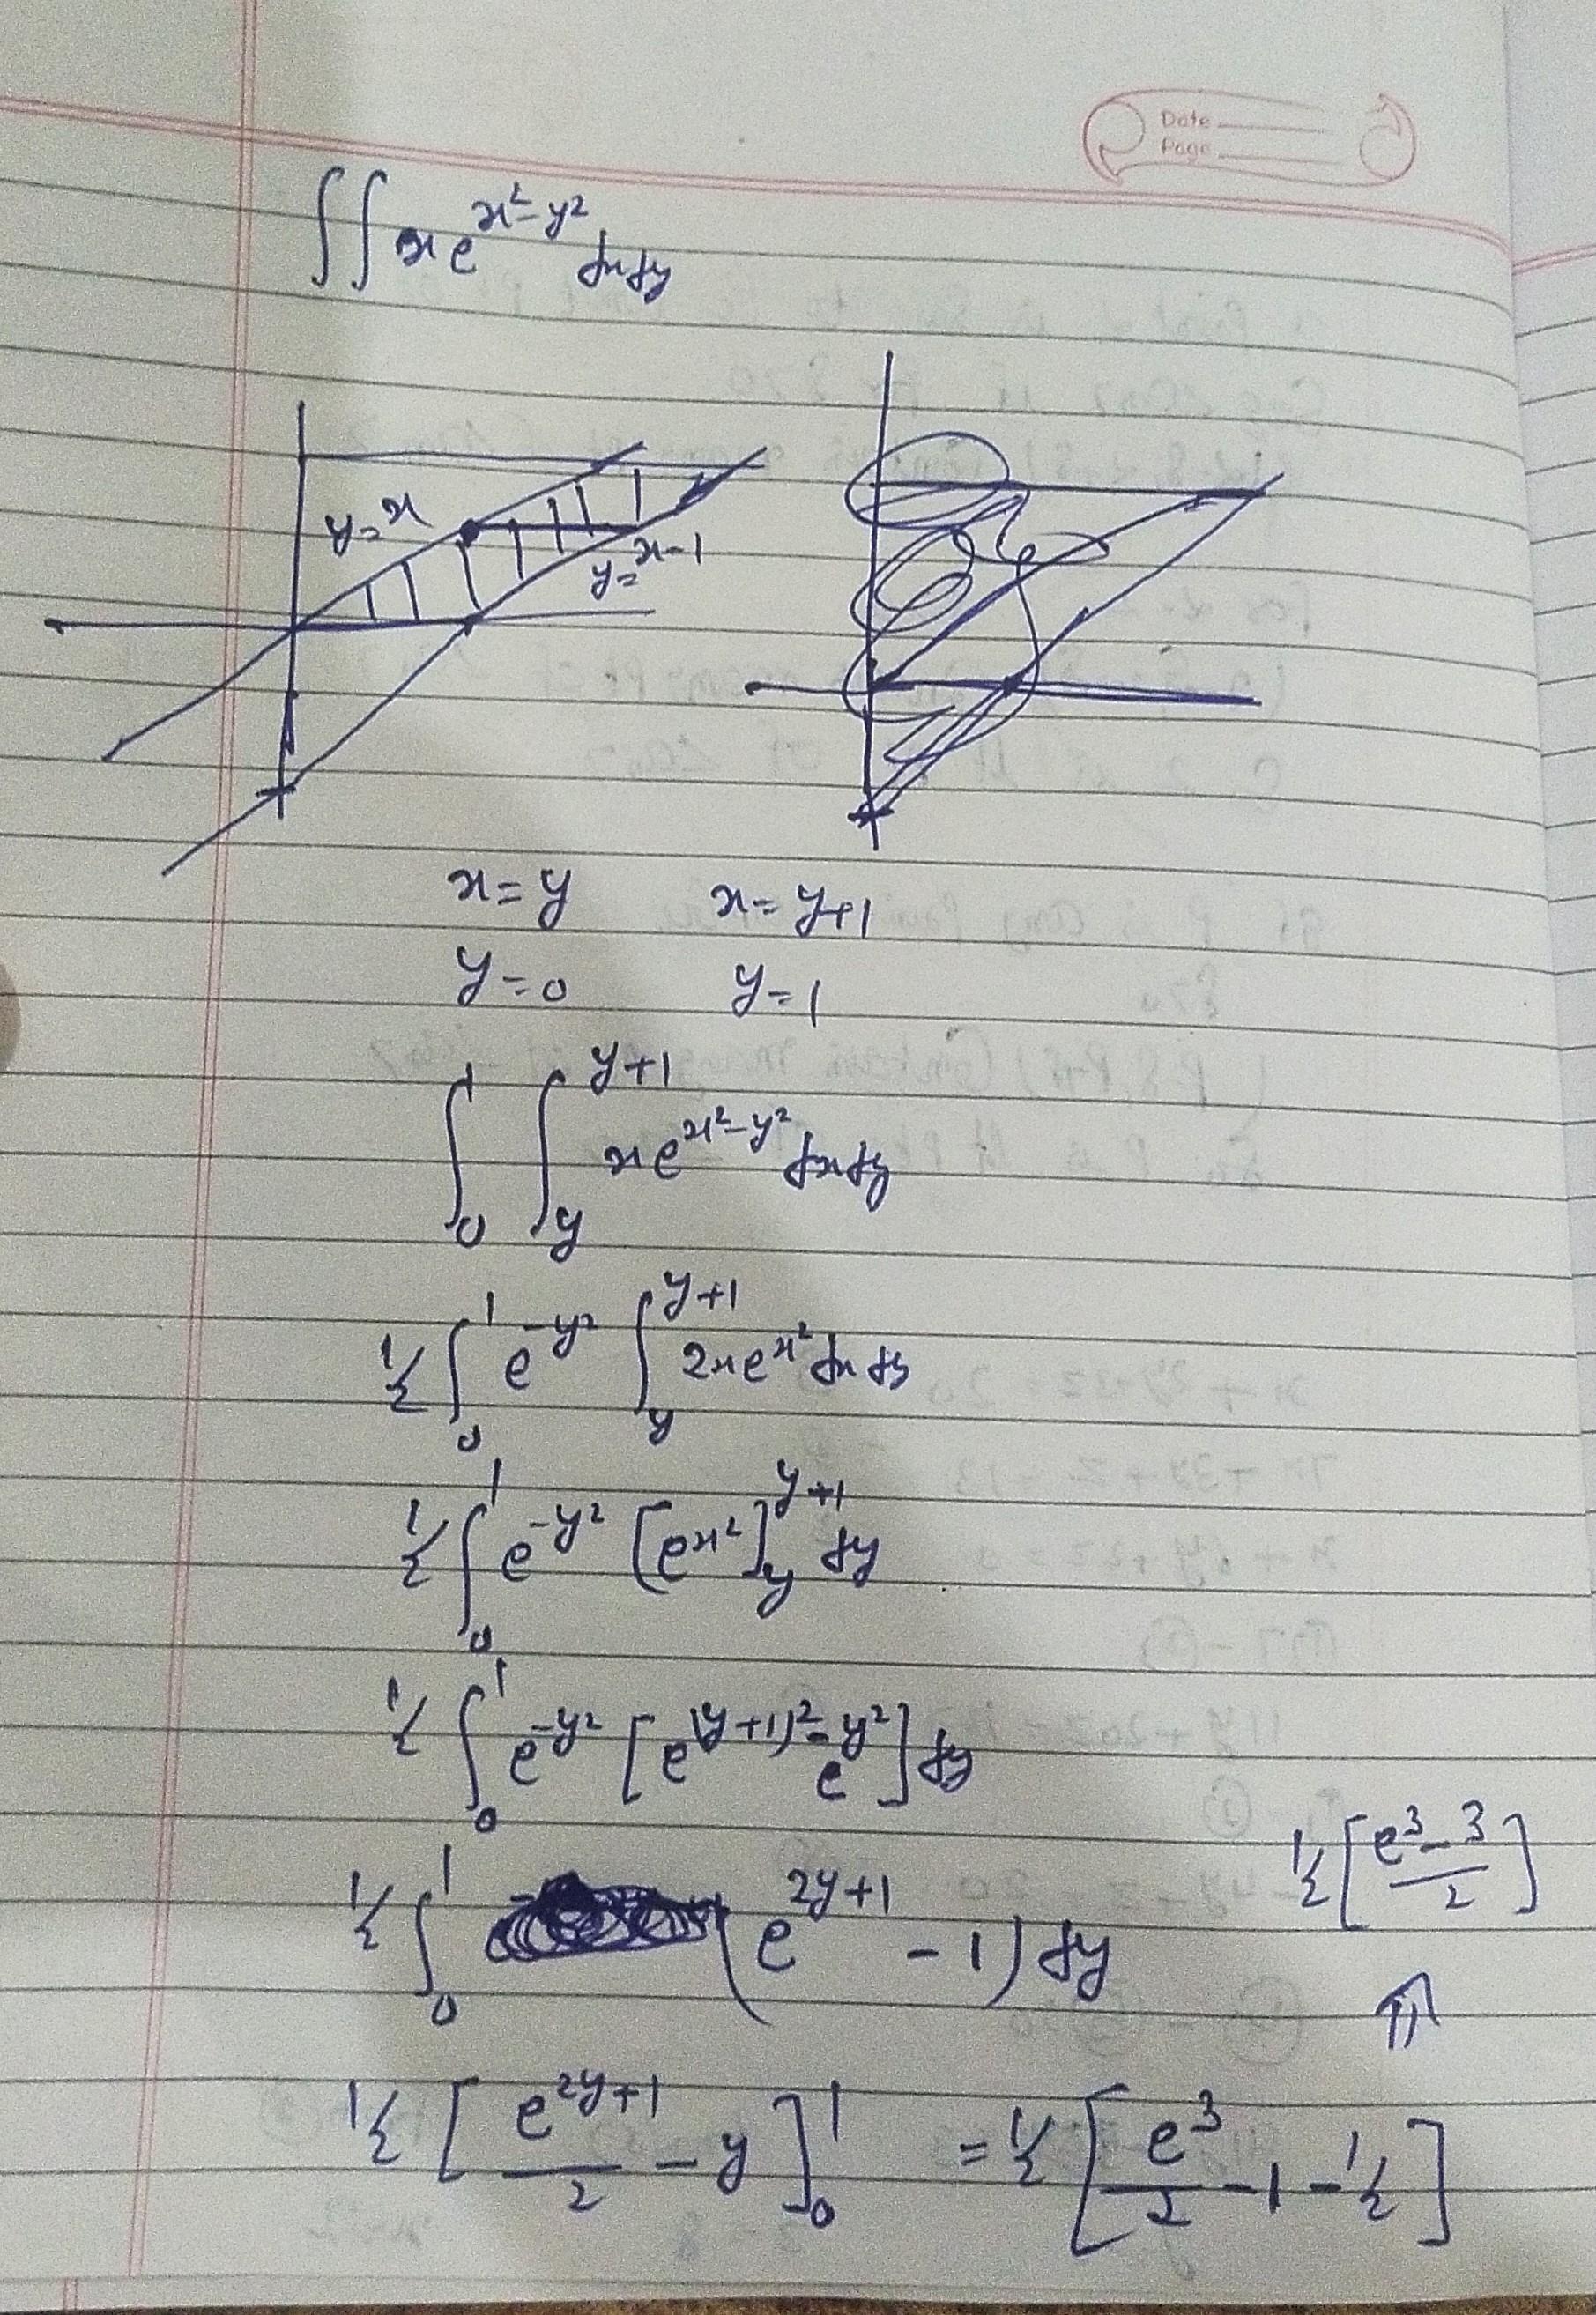 Date
Page
∫∫ x e^{x²-y²} dx dy
y=x
y=x-1
x=y x=y+1
y=0 y=1
∫_0^1 ∫_y^{y+1} x e^{x²-y²} dx dy
1/2 ∫_0^1 e^{-y²} ∫_y^{y+1} 2x e^{x²} dx dy
1/2 ∫_0^1 e^{-y²} [e^{x²}]_y^{y+1} dy
1/2 ∫_0^1 e^{-y²} [e^{(y+1)²} - e^{y²}] dy
1/2 ∫_0^1 (e^{2y+1} - 1) dy
1/2 [(e^3 - 3)/2]
⇑
1/2 [e^{2y+1}/2 - y]_0^1 = 1/2 [e^3/2 - 1 - 1/2]